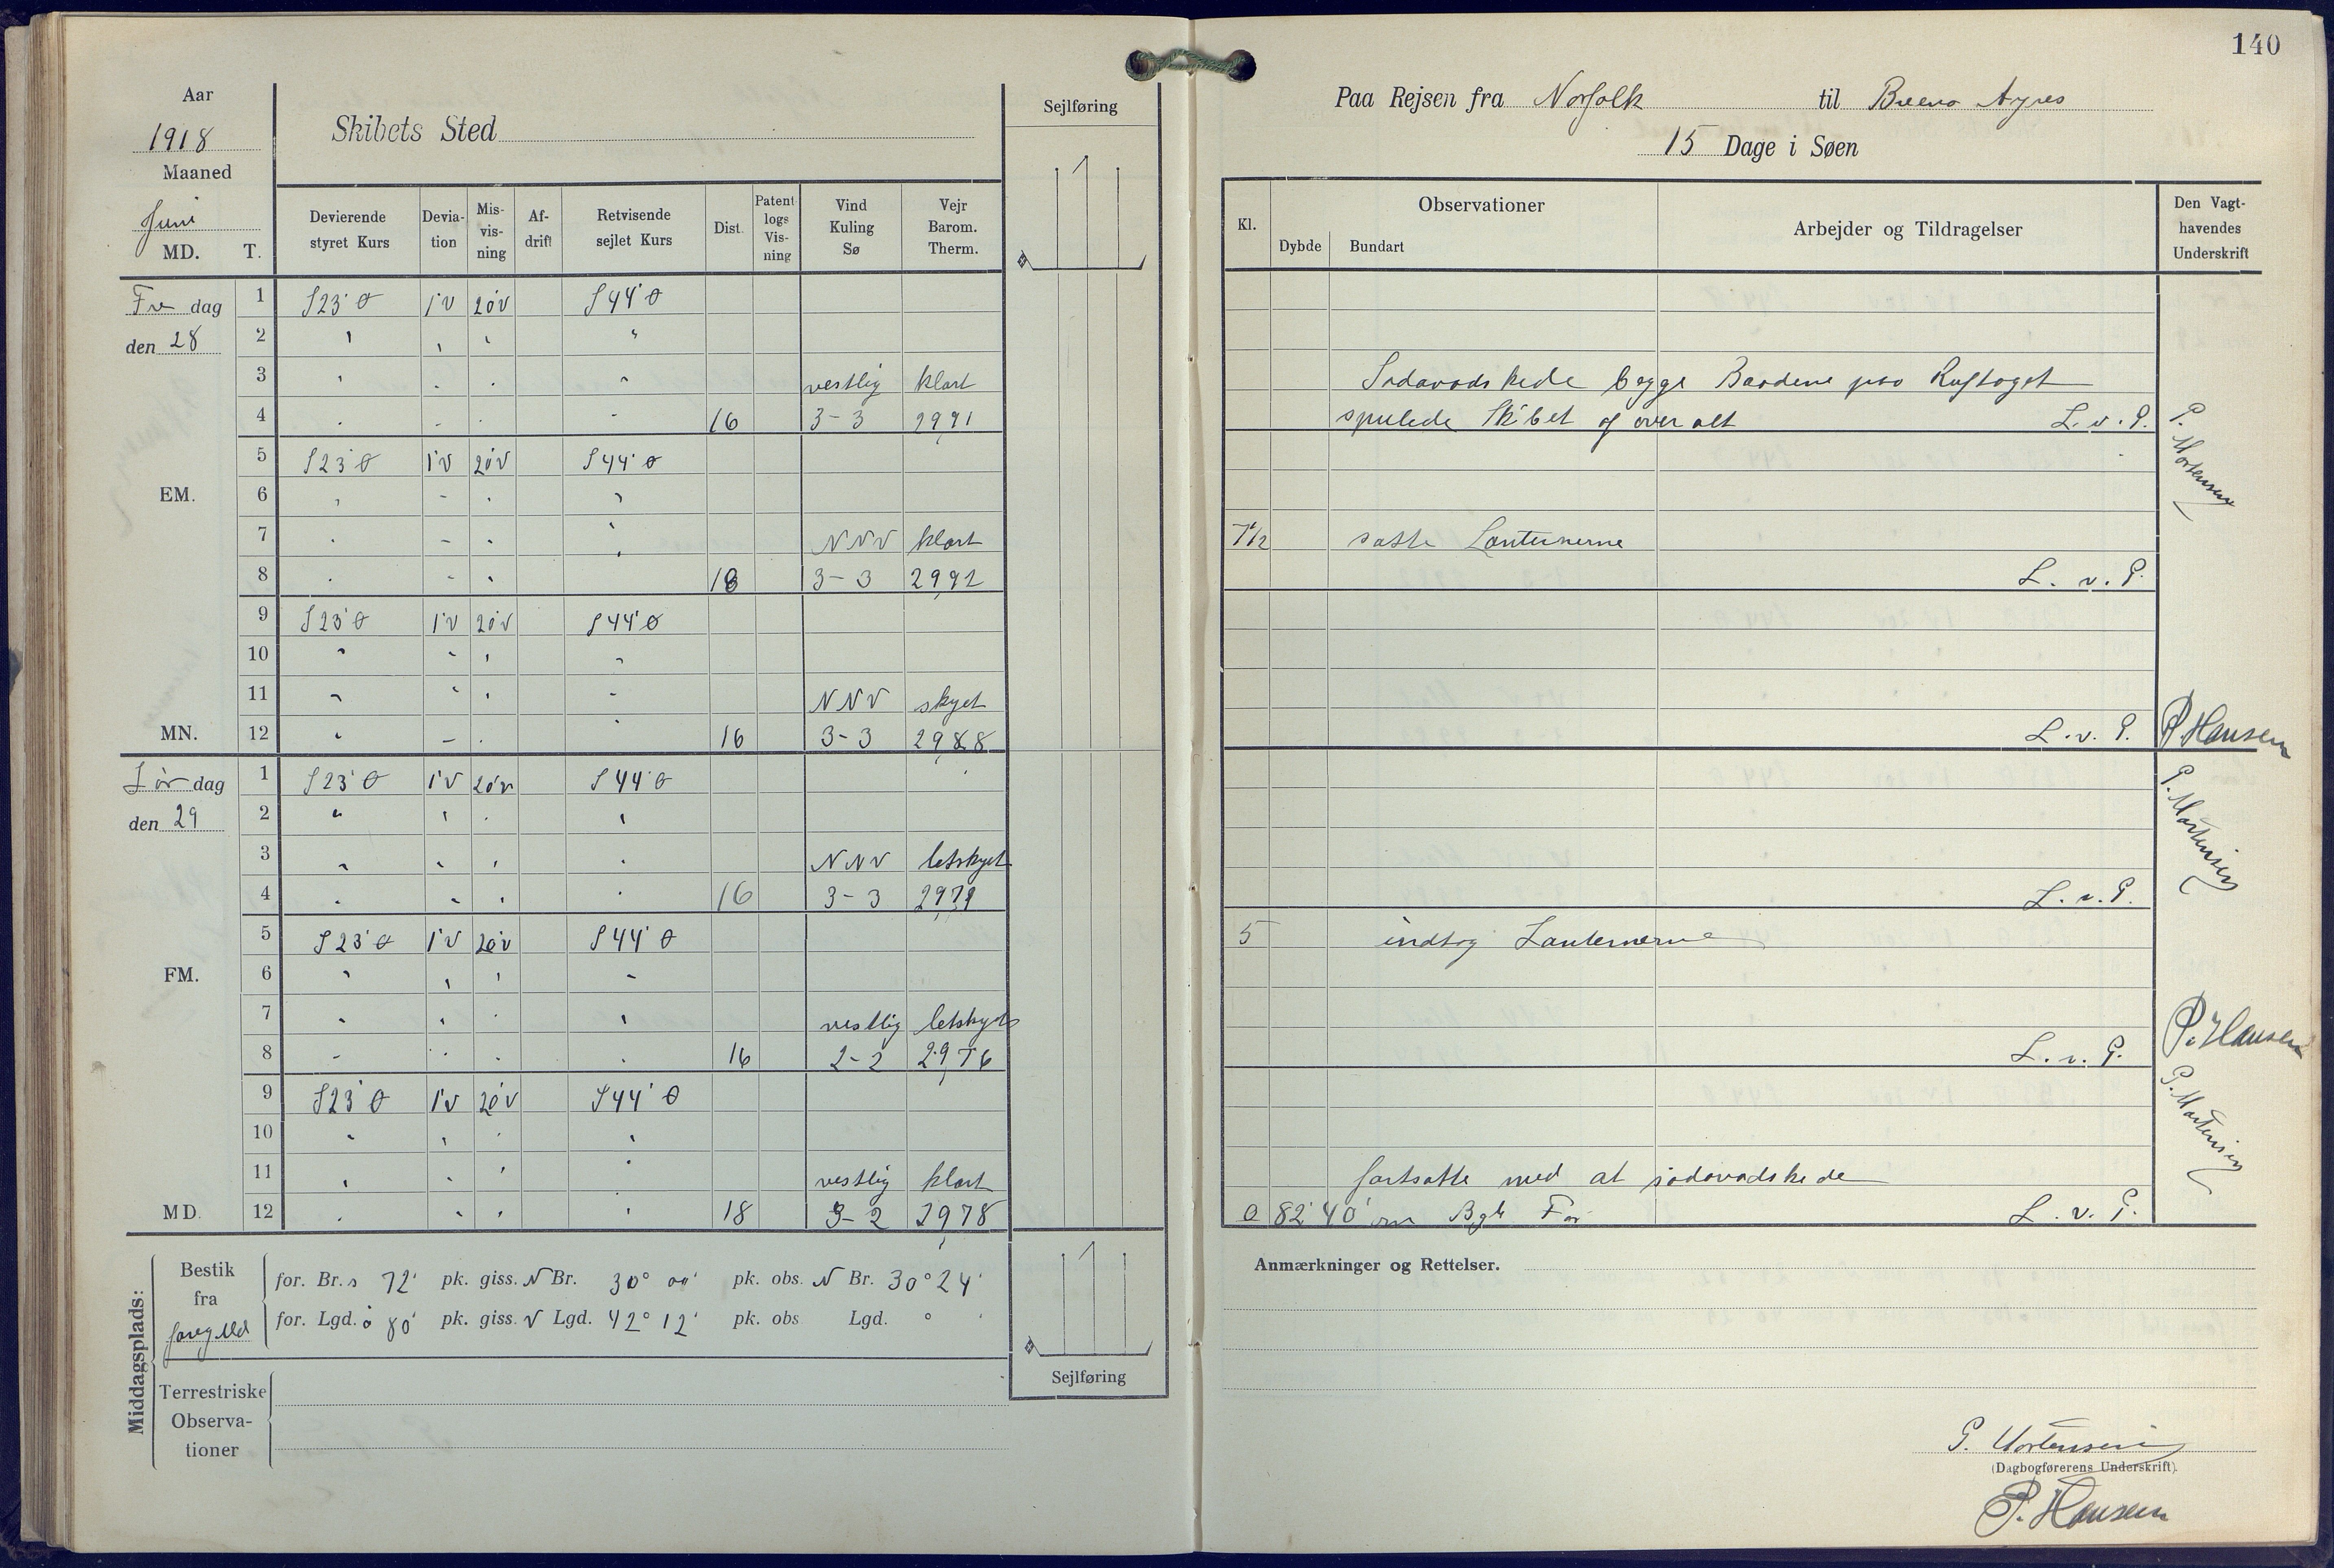 140
Aar
1918
Maaned
Juni
MD. T.
Skibets Sted
Sejlføring
Devierende styret Kurs | Devia-tion | Mis-vis-ning | Af-drift | Retvisende sejlet Kurs | Dist. | Patent logs Vis-ning | Vind Kuling Sø | Vejr Barom. Therm.
Fre dag 1 S23°Ø 1°V 20°V S44°Ø
den 28 2 " " " "
3 " " " " vestlig klart
4 " " " " 16 3-3 2991
5 S23°Ø 1°V 20°V S44°Ø
EM. 6 " " " "
7 " " " " NNV klart
8 " " " " 18 3-3 2992
9 S23°Ø 1°V 20°V S44°Ø
10 " " " "
11 " " " " NNV skyet
MN. 12 " " " " 16 3-3 2988
Lør dag 1 S23°Ø 1°V 20°V S44°Ø
den 29 2 " " " "
3 " " " " NNV letskyet
4 " " " " 16 3-3 2979
5 S23°Ø 1°V 20°V S44°Ø
FM. 6 " " " "
7 " " " " vestlig letskyet
8 " " " " 16 2-2 2976
9 S23°Ø 1°V 20°V S44°Ø
10 " " " "
11 " " " " vestlig klart
MD. 12 " " " " 18 3-2 2978
Middagsplads:
Bestik fra foreg Md
for. Br. s 72' pk. giss. N Br. 30° 00' pk. obs. N Br. 30° 24'
for. Lgd. ø 80' pk. giss. V Lgd. 42° 12' pk. obs. Lgd. ° '
Terrestriske Observa-tioner
Sejlføring
Paa Rejsen fra Norfolk til Bueno Ayres
15 Dage i Søen
Kl. | Observationer | Dybde | Bundart | Arbejder og Tildragelser | Den Vagt-havendes Underskrift
Sodavadskede begge Baadene paa Ruftaget
spulede Skibet af over alt L. v. P.
P. Mortensen
7 1/2 satte Lanternerne
L. v. P.
L. v. P. P. Hansen
P. Mortensen
L. v. P.
5 indtog Lanternerne
L. v. P. P. Hansen
P. Mortensen
fortsatte med at sodavadskede
82° 40' Bgb For L. v. P.
Anmærkninger og Rettelser.
P. Mortensen
(Dagbogførerens Underskrift).
P. Hansen